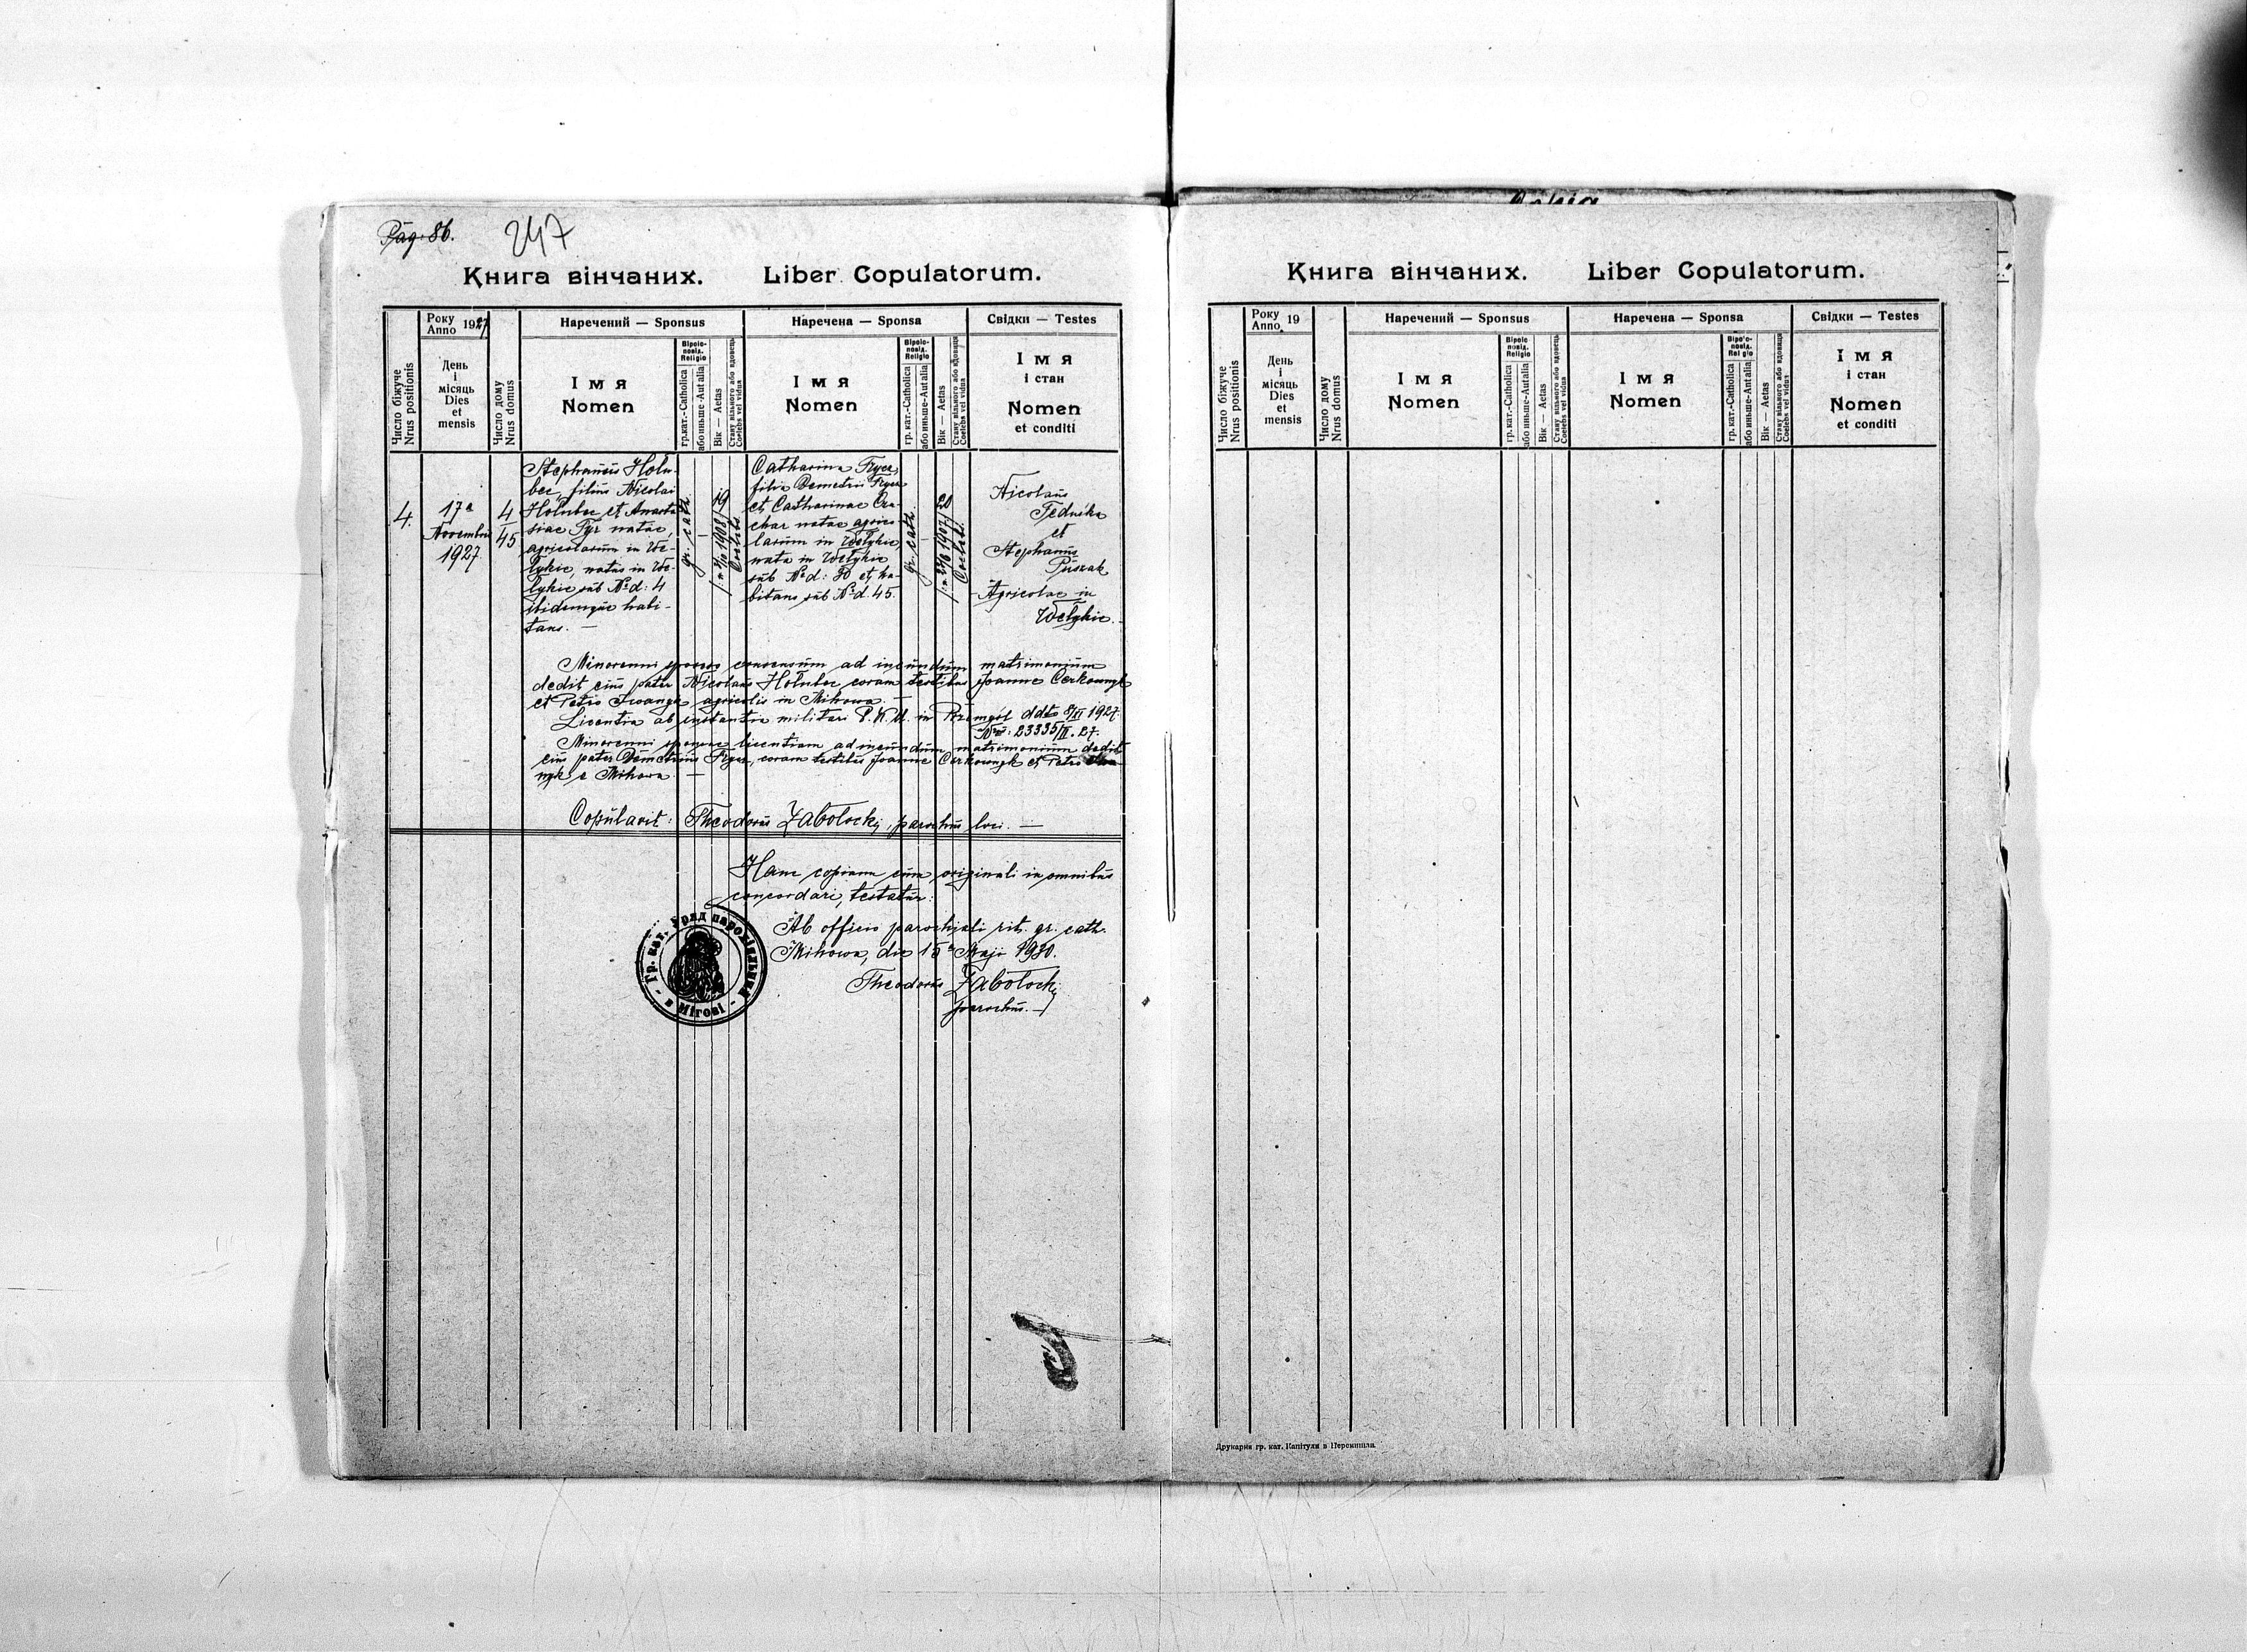 Pag. 86.
247
Книга вінчаних. Liber Copulatorum.
Число біжуче
Nrus positionis
Року
Anno 1927
День
і
місяць
Dies
et
mensis
Число дому
Nrus domus
Наречений — Sponsus
Імя
Nomen
Віроіс-
повід.
Religio
гр.кат.-Catholica
або иньше-Aut alia
Вік — Aetas
Стану вільного або вдовець
Coelebs vel vidus
Наречена — Sponsa
Імя
Nomen
Віроіс-
повід.
Religio
гр. кат.-Catholica
або иньше-Aut alia
Вік — Aetas
Стану вільного або вдовиця
Coelebs vel vidua
Свідки — Testes
Імя
і стан
Nomen
et conditi
4.
17a
Novembris
1927.
4
45
Stephanus Holu-
bec, filius Nicolai
Holubec et Anasta-
siae Tyr natae,
agricolarum in We-
lykie, natus in We-
lykie sub No d: 4
ibidemque habi-
tans. —
gr. cath.
19
1908
Coelebs
Catharina Fryer,
filia Demetrii Fryer
et Catharinae
natae agrico-
larum in Welykie,
nata in Welykie
sub No d: 30 et ha-
bitans sub No d. 45.
gr. cath.
20
1907
Coelebs
Nicolaus
Fednika
et
Stephanus
Puszak
Agricolae in
Welykie.
Minorenni sponso consensum ad ineundum matrimonium
dedit eius pater Nicolaus Holubec coram testibus Joanne Cerkownyk
et Petro Iwanyk agricolis in Mihowa. —
Licentia ab instantia militari P. K. U. in Przemyśl ddto 8/XI 1927.
Nro: 23335/II. 27.
Minorenni sponsae licentiam ad ineundum matrimonium dedit
eius pater Demetrius Fryer, coram testibus Joanne Cerkownyk et Petro Iwa-
nyk e Mihowa. —
Copulavit: Theodorus Zabolockij, parochus loci. —
Hanc copiam cum originali in omnibus
concordari, testatur:
Ab officio parochjali rit. gr. cath.
Mihowa, die 15a Maji 1930.
Theodorus Zabolockij
parochus. —
Гр. кат. Уряд парохіальний
в Мігові
Книга вінчаних. Liber Copulatorum.
Число біжуче
Nrus positionis
Року
Anno 19
День
і
місяць
Dies
et
mensis
Число дому
Nrus domus
Наречений — Sponsus
Імя
Nomen
Віроіс-
повід.
Religio
гр.кат.-Catholica
або иньше-Aut alia
Вік — Aetas
Стану вільного або вдовець
Coelebs vel vidus
Наречена — Sponsa
Імя
Nomen
Віроіс-
повід.
Religio
гр. кат.-Catholica
або иньше-Aut alia
Вік — Aetas
Стану вільного або вдовиця
Coelebs vel vidua
Свідки — Testes
Імя
і стан
Nomen
et conditi
Друкарня гр. кат. Капітули в Перемишлі.